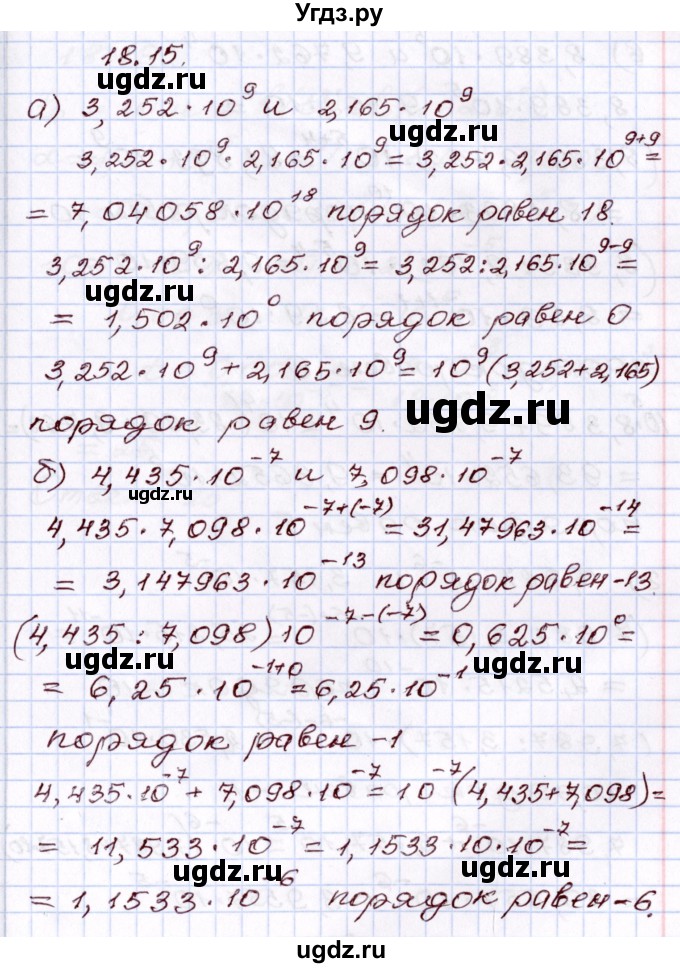 Угдз.ру
18.15.
ugdz.ru
а) 3,252·10⁹ и 2,165·10⁹
ugdz.ru
3,252·10⁹·2,165·10⁹=3,252·2,165·10⁹⁺⁹=
=7,04058·10¹⁸ порядок равен 18.
3,252·10⁹:2,165·10⁹=3,252:2,165·10⁹⁻⁹=
ugdz.ru
= 1,502·10⁰ порядок равен 0
3,252·10⁹+2,165·10⁹=10⁹(3,252+2,165)
порядок равен 9. ugdz.ru
б) 4,435·10⁻⁷ и 7,098·10⁻⁷
ugdz.ru
4,435·7,098·10⁻⁷⁺⁽⁻⁷⁾=31,47963·10⁻¹⁴=
= 3,147963·10⁻¹³ порядок равен-13.
(4,435:7,098)10⁻⁷⁻⁽⁻⁷⁾=0,625·10⁰=
ugdz.ru ugdz.ru
= 6,25·10⁻¹⁺⁰=6,25·10⁻¹
порядок равен -1
4,435·10⁻⁷+7,098·10⁻⁷=10⁻⁷(4,435+7,098)=
ugdz.ru
= 11,533·10⁻⁷=1,1533·10·10⁻⁷=
ugdz.ru
= 1,1533·10⁻⁶ порядок равен-6.
ugdz.ru
ugdz.ru